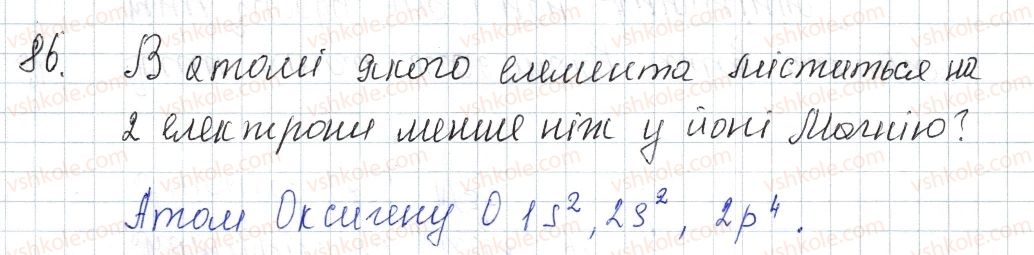 86. В атомі якого елемента міститься на
2 електрони менше ніж у йоні Магнію?
Атом Оксигену O 1s², 2s², 2p⁴.